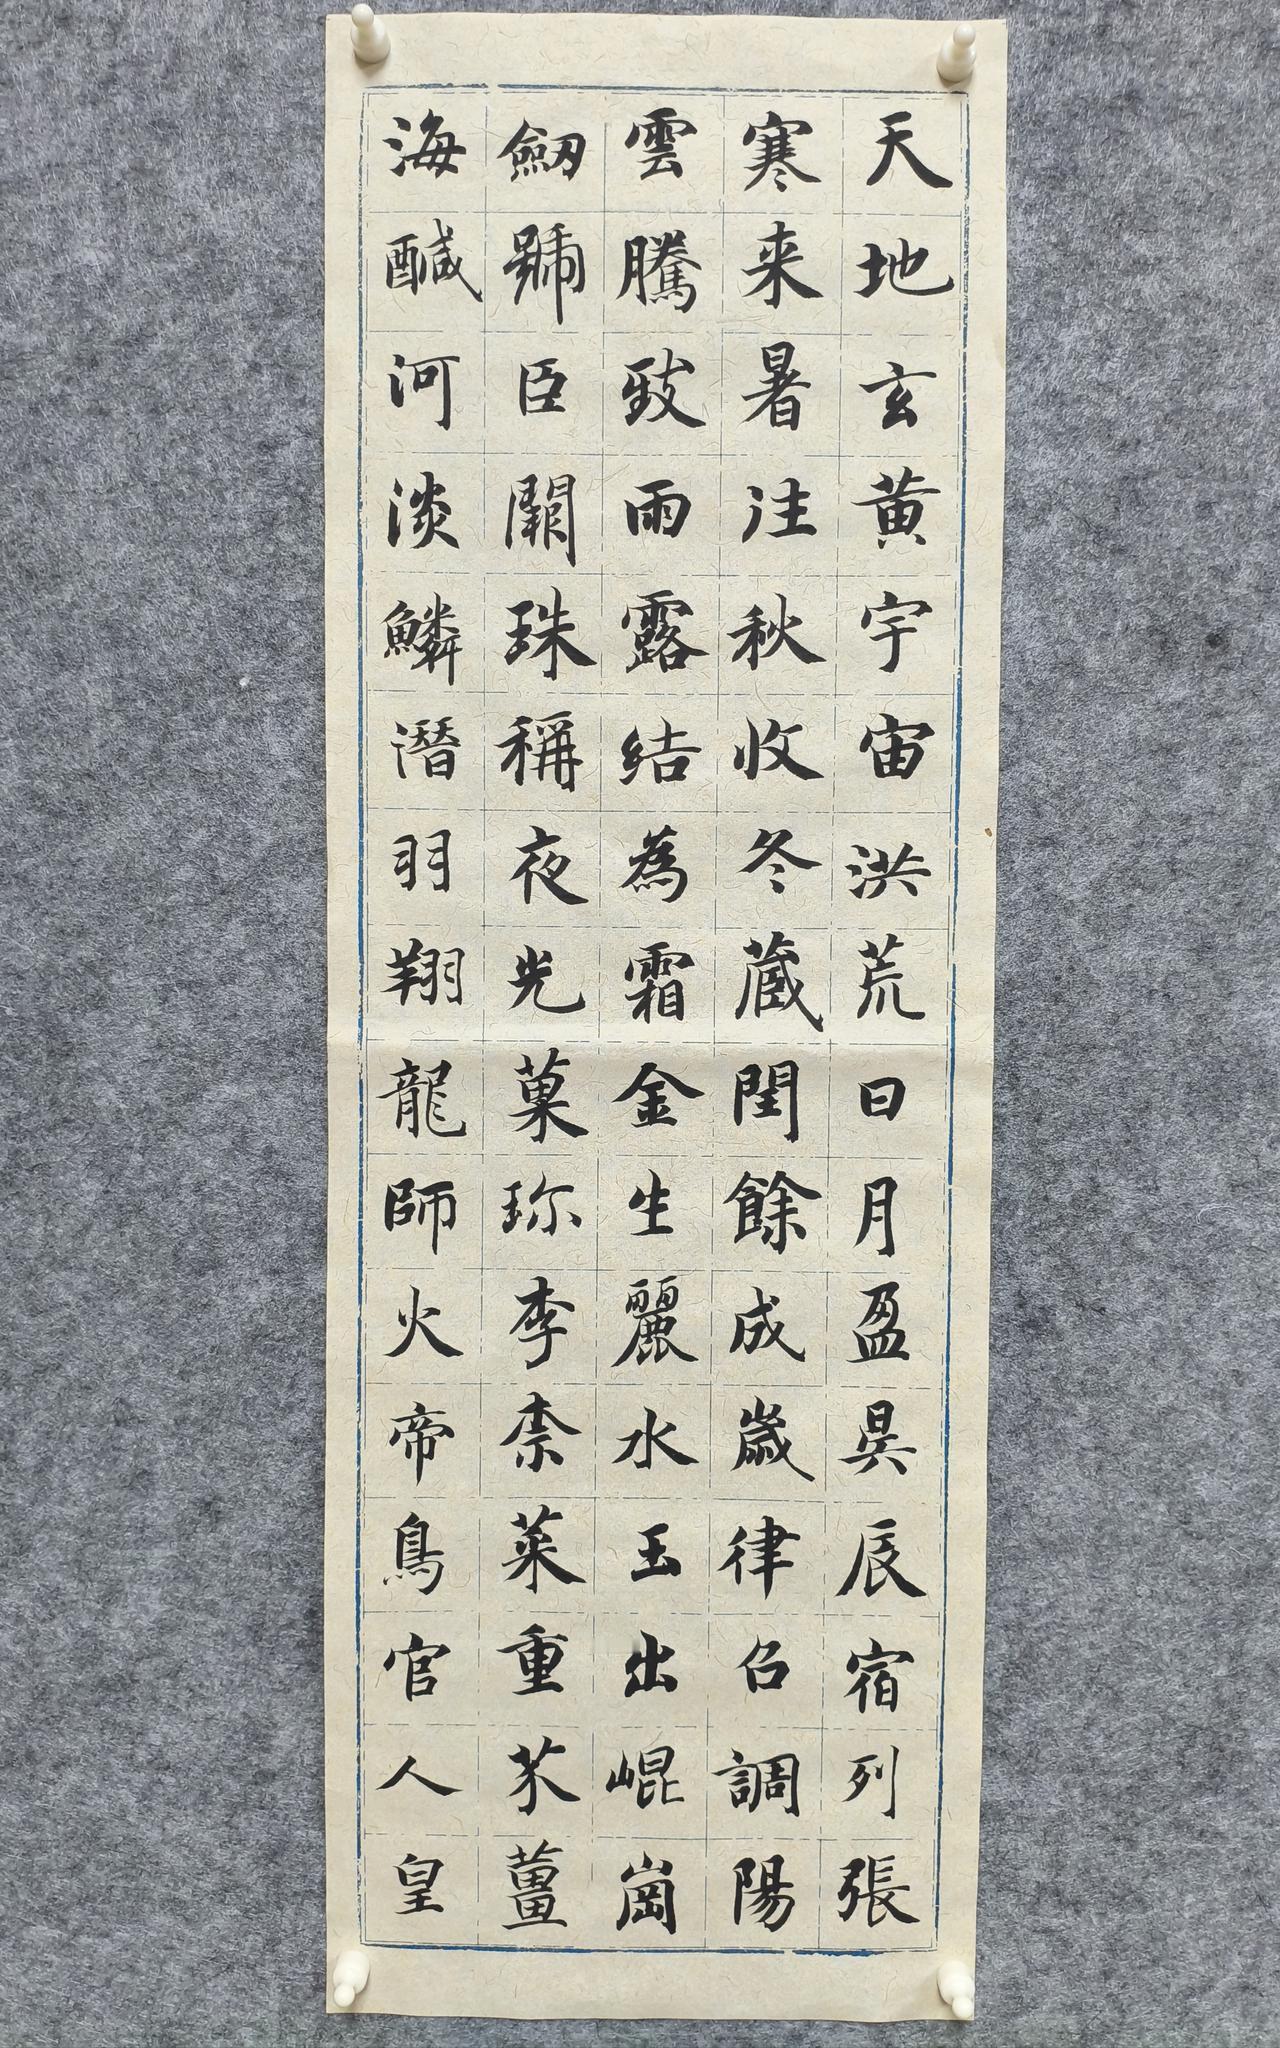 天地玄黄宇宙洪荒日月盈昃辰宿列張
寒来暑往秋收冬蔵閏餘成歲律召調陽
雲騰致雨露結為霜金生麗水玉出崐崗
劒號臣闕珠稱夜光菓珎李柰菜重芥薑
海鹹河淡鱗潛羽翔龍師火帝鳥官人皇